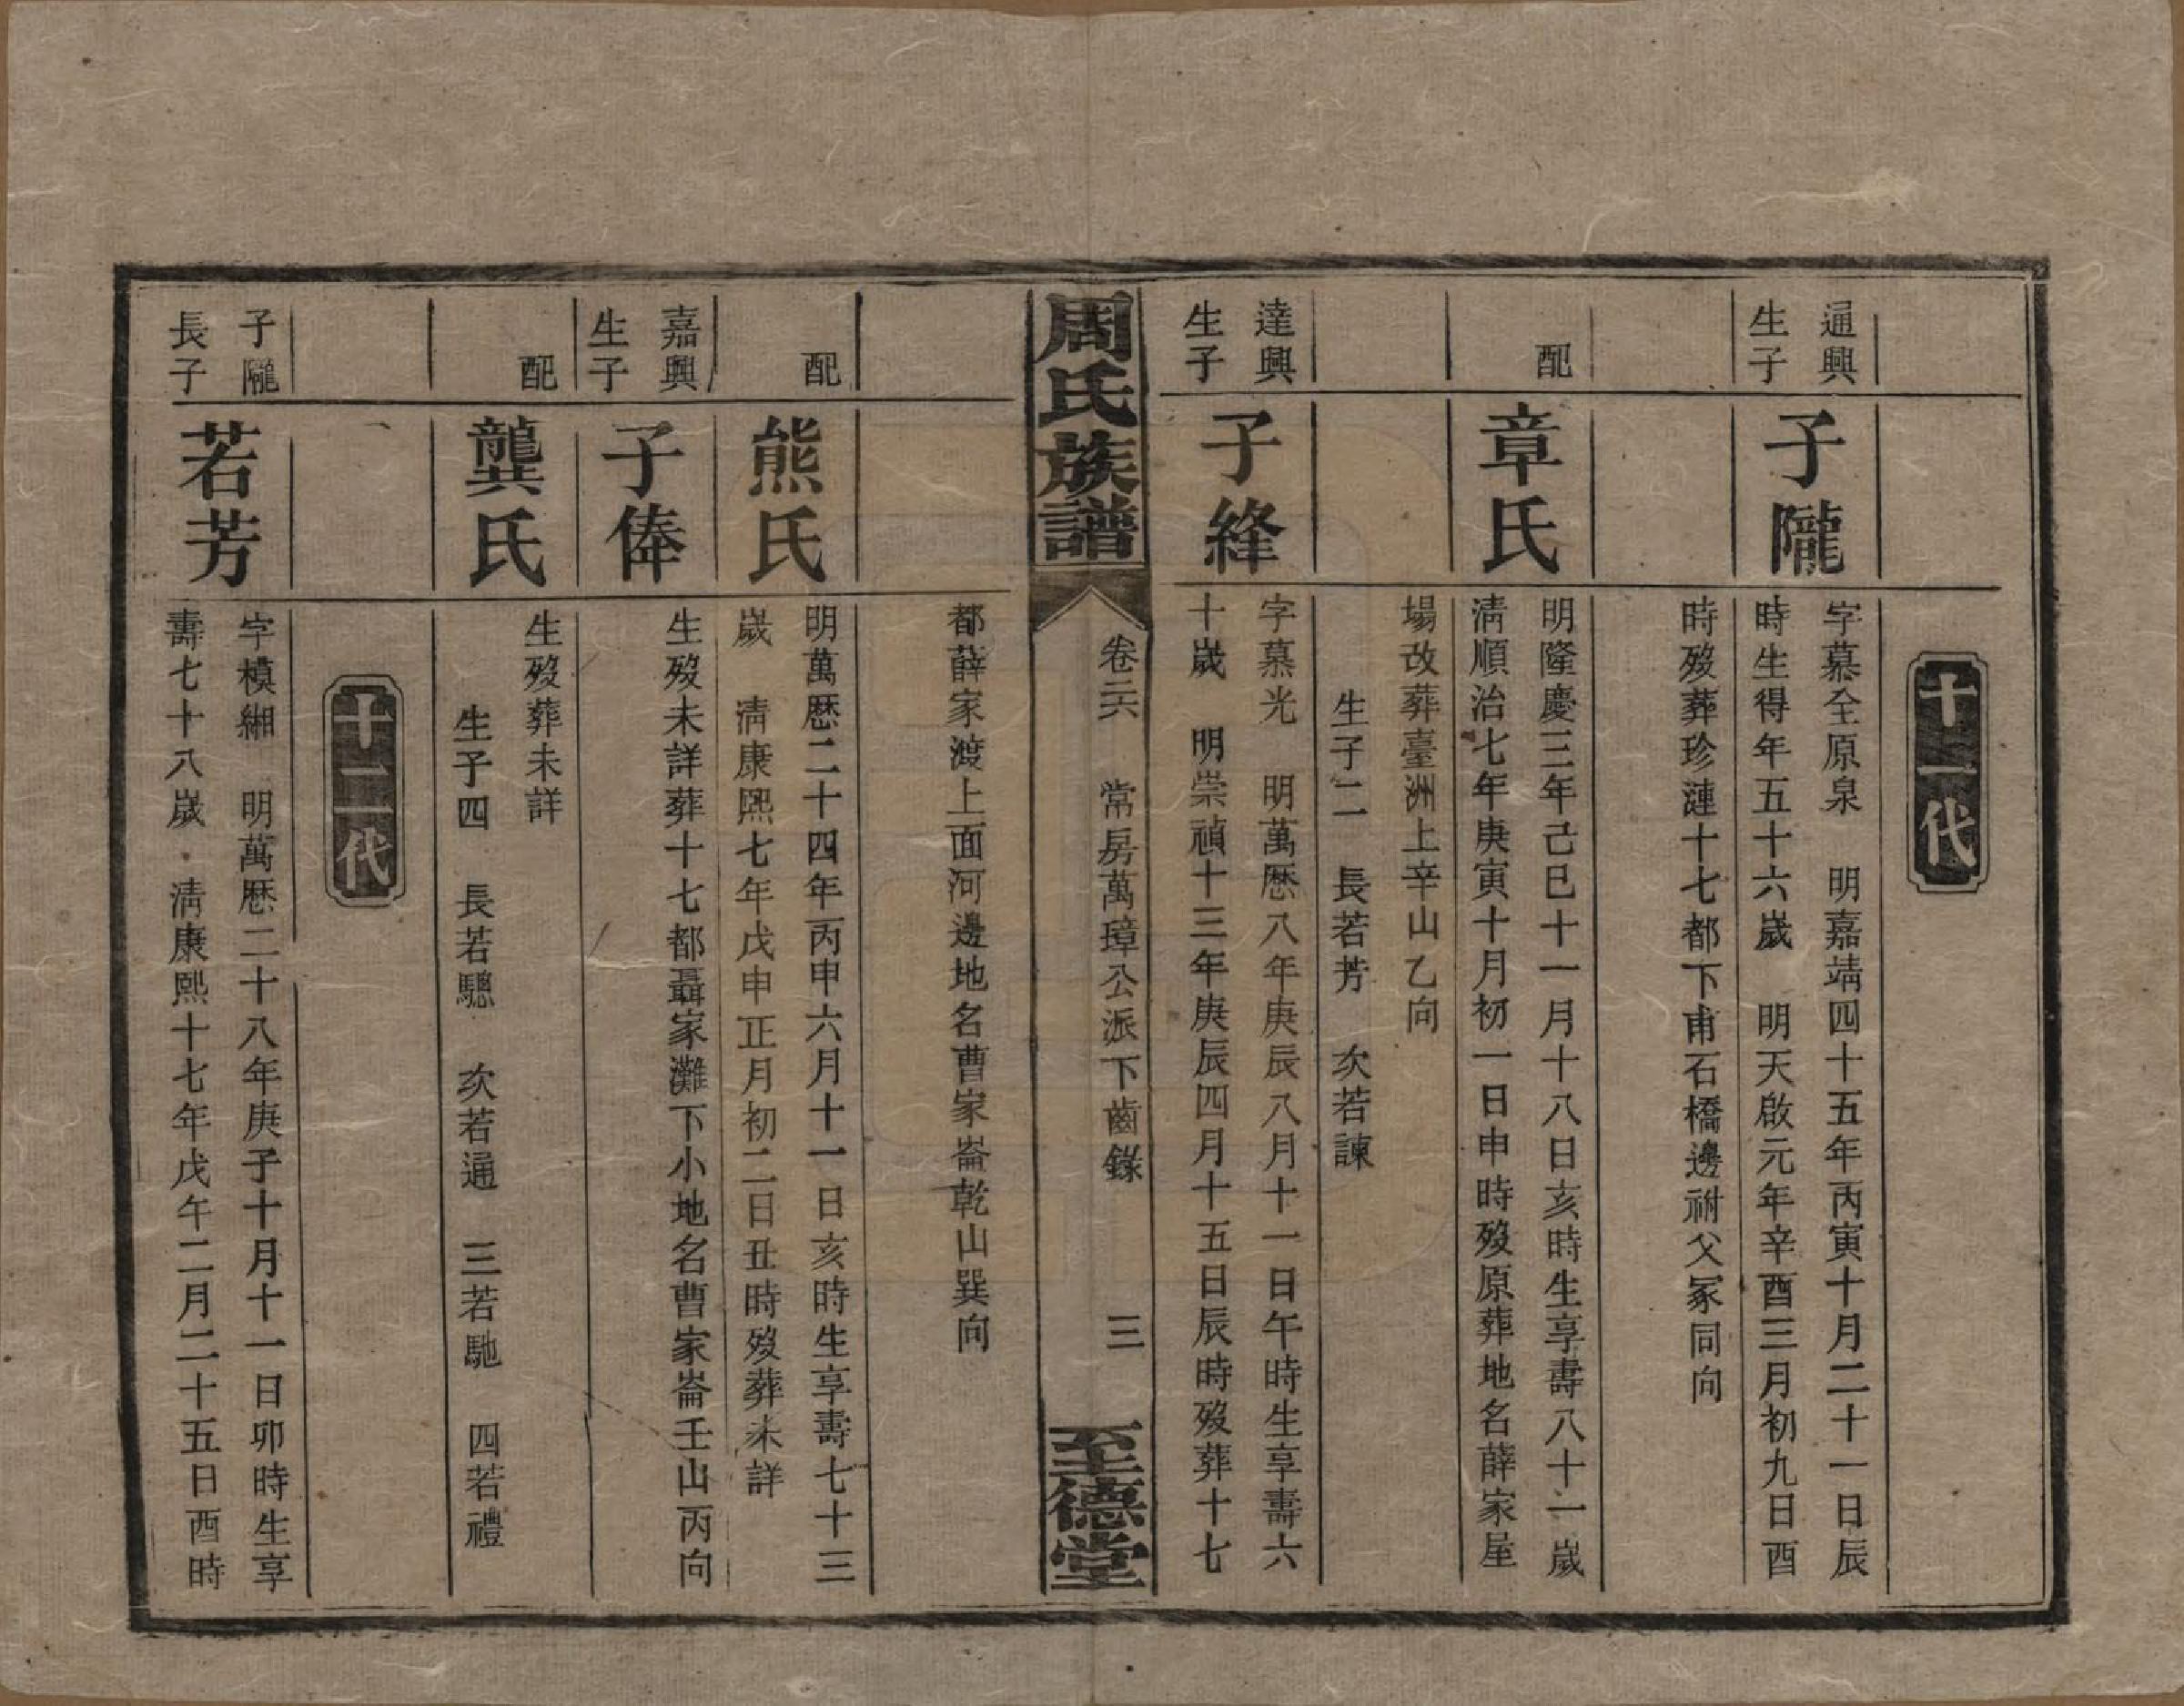 十一代
通興
生子
子隴
字慕全原泉　明嘉靖四十五年丙寅十月二十一日辰
時生得年五十六歲　明天啟元年辛酉三月初九日酉
時歿葬珍漣十七都下甫石橋邊祔父冢同向
配
章氏
明隆慶三年己巳十一月十八日亥時生享壽八十一歲
清順治七年庚寅十月初一日申時歿原葬地名薛家屋
場改葬臺洲上辛山乙向
生子二　長若芳　次若諫
達興
生子
子絳
字慕光　明萬曆八年庚辰八月十一日午時生享壽六
十歲　明崇禎十三年庚辰四月十五日辰時歿葬十七
周氏族譜
卷二六　常房萬璋公派下齒錄　三
至德堂
都薛家渡上面河邊地名曹家崙乾山巽向
配
熊氏
明萬曆二十四年丙申六月十一日亥時生享壽七十三
歲　清康熙七年戊申正月初二日丑時歿葬未詳
嘉興
生子
子俸
生歿未詳葬十七都聶家灘下小地名曹家崙壬山丙向
配
龔氏
生歿葬未詳
生子四　長若驄　次若通　三若馳　四若禮
十二代
子隴
長子
若芳
字模緗　明萬曆二十八年庚子十月十一日卯時生享
壽七十八歲　清康熙十七年戊午二月二十五日酉時